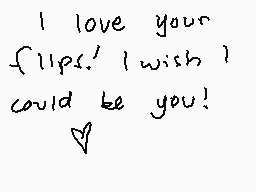 I love your
flips! I wish I
could be you!
♡